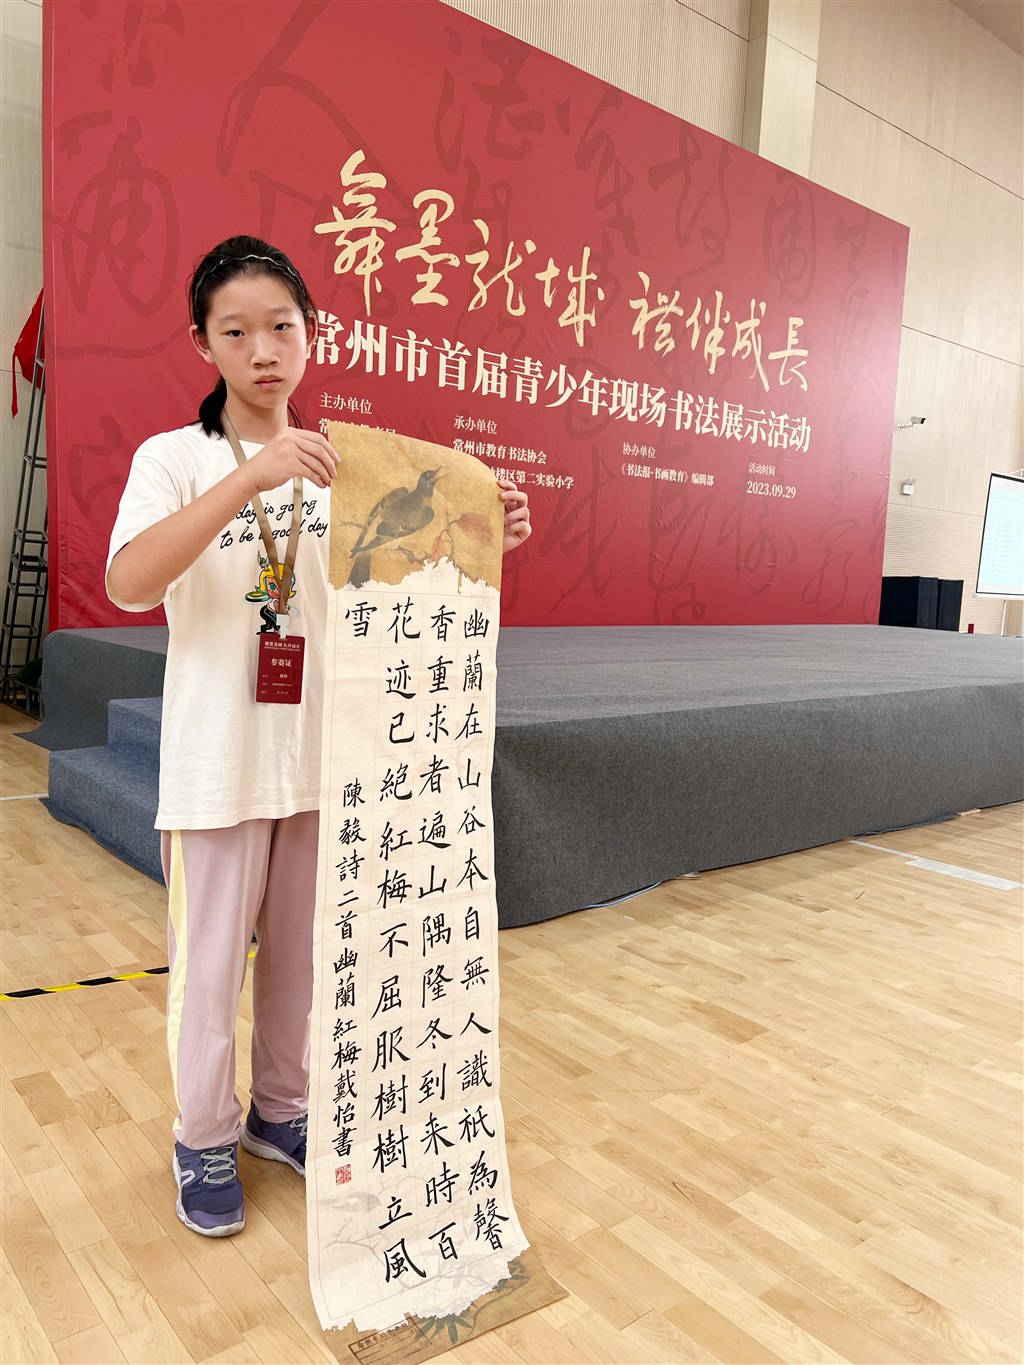 舞墨龙城 礼伴成长
常州市首届青少年现场书法展示活动
主办单位
承办单位
常州市教育书法协会
楼区第二实验小学
协办单位
《书法报·书画教育》编辑部
活动时间
2023.09.29
day is going
to be a good day
参赛证
幽蘭在山谷本自無人識祇為馨
香重求者遍山隅隆冬到来時百
花迹已絕紅梅不屈服樹樹立風
雪
陳毅詩二首幽蘭紅梅戴怡書